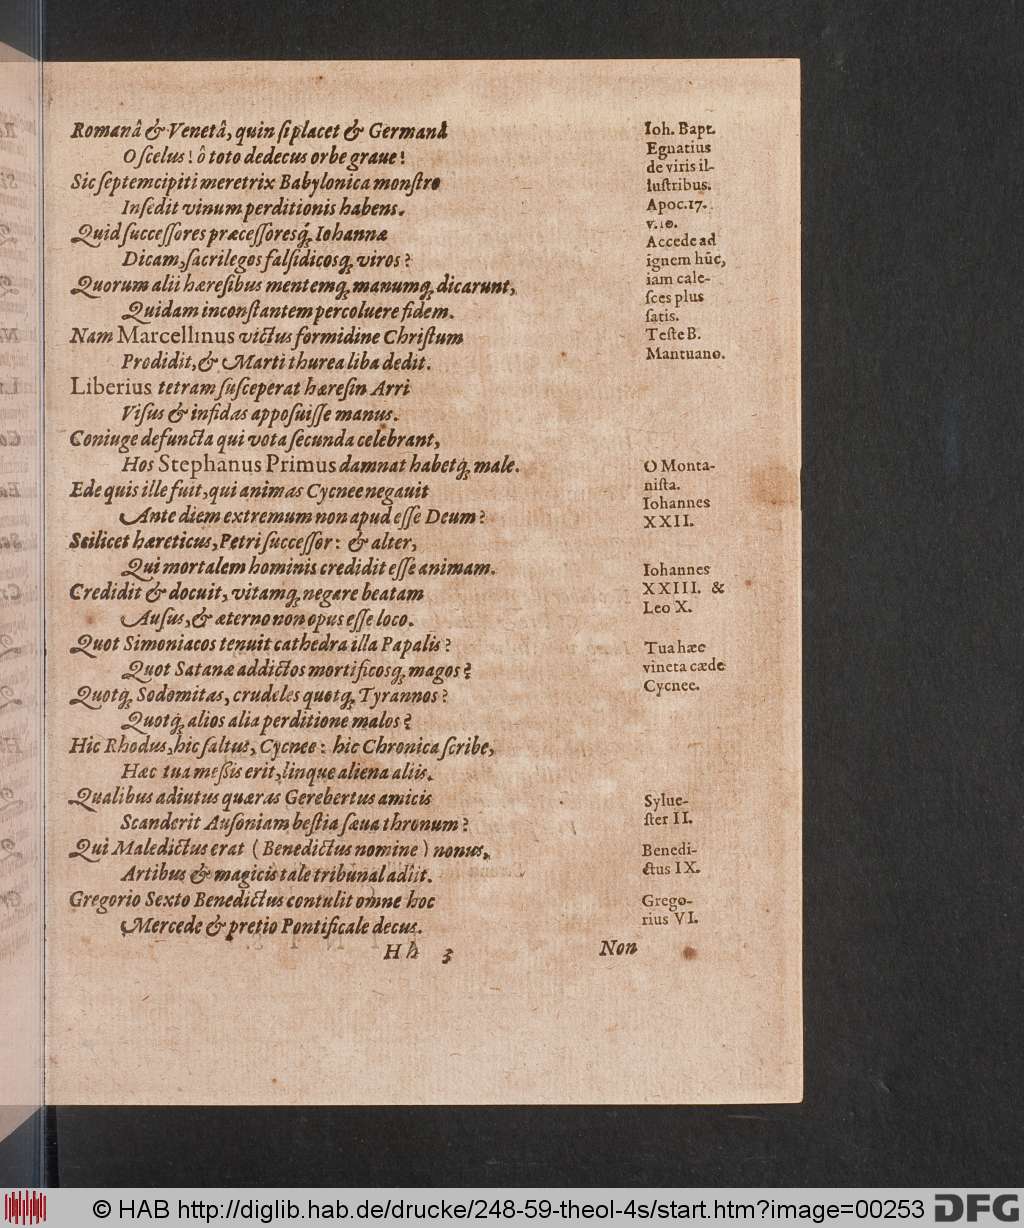 Romanâ & Venetâ, quin si placet & Germanâ
O scelus! ô toto dedecus orbe graue!
Sic septemcipiti meretrix Babylonica monstro
Insedit vinum perditionis habens.
Quid successores præcessoresq́; Iohannæ
Dicam, sacrilegos falsidicosq́; viros?
Quorum alii hæresibus mentemq́; manumq́; dicarunt,
Quidam inconstantem percoluere fidem.
Nam Marcellinus victus formidine Christum
Prodidit, & Marti thurea liba dedit.
Liberius tetram susceperat hæresin Arri
Visus & infidas apposuisse manus.
Coniuge defuncta qui vota secunda celebrant,
Hos Stephanus Primus damnat habetq́; male.
Ede quis ille fuit, qui animas Cycnee negauit
Ante diem extremum non apud esse Deum?
Scilicet hæreticus, Petri successor: & alter,
Qui mortalem hominis credidit esse animam.
Credidit & docuit, vitamq́; negare beatam
Ausus, & æterno non opus esse loco.
Quot Simoniacos tenuit cathedra illa Papalis?
Quot Satanæ addictos mortificosq́; magos?
Quotq́; Sodomitas, crudeles quotq́; Tyrannos?
Quotq́; alios alia perditione malos?
Hic Rhodus, hic saltus, Cycnee: hic Chronica scribe,
Hæc tua meßis erit, linque aliena aliis.
Qualibus adiutus quæras Gerebertus amicis
Scanderit Ausoniam bestia sæua thronum?
Qui Maledictus erat (Benedictus nomine) nonus,
Artibus & magicis tale tribunal adiit.
Gregorio Sexto Benedictus contulit omne hoc
Mercede & pretio Pontificale decus.
Hh 3 Non
Ioh. Bapt.
Egnatius
de viris il-
lustribus.
Apoc.17.
v.10.
Accede ad
ignem hûc,
iam cale-
sces plus
satis.
Teste B.
Mantuano.
O Monta-
nista.
Iohannes
XXII.
Iohannes
XXIII. &
Leo X.
Tua hæc
vineta cæde
Cycnee.
Sylue-
ster II.
Benedi-
ctus IX.
Grego-
rius VI.
© HAB http://diglib.hab.de/drucke/248-59-theol-4s/start.htm?image=00253
DFG